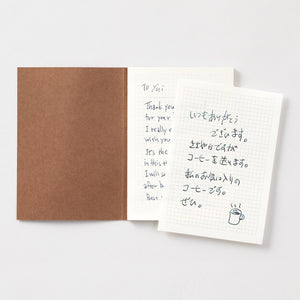 To Yuri
Thank you
for your
I really e
wish you
It's the
in this th
I will se
after b
Best
いつもありがとう
ございます。
ささやかですが
コーヒーを送ります。
私のお気に入りの
コーヒーです。
ぜひ。